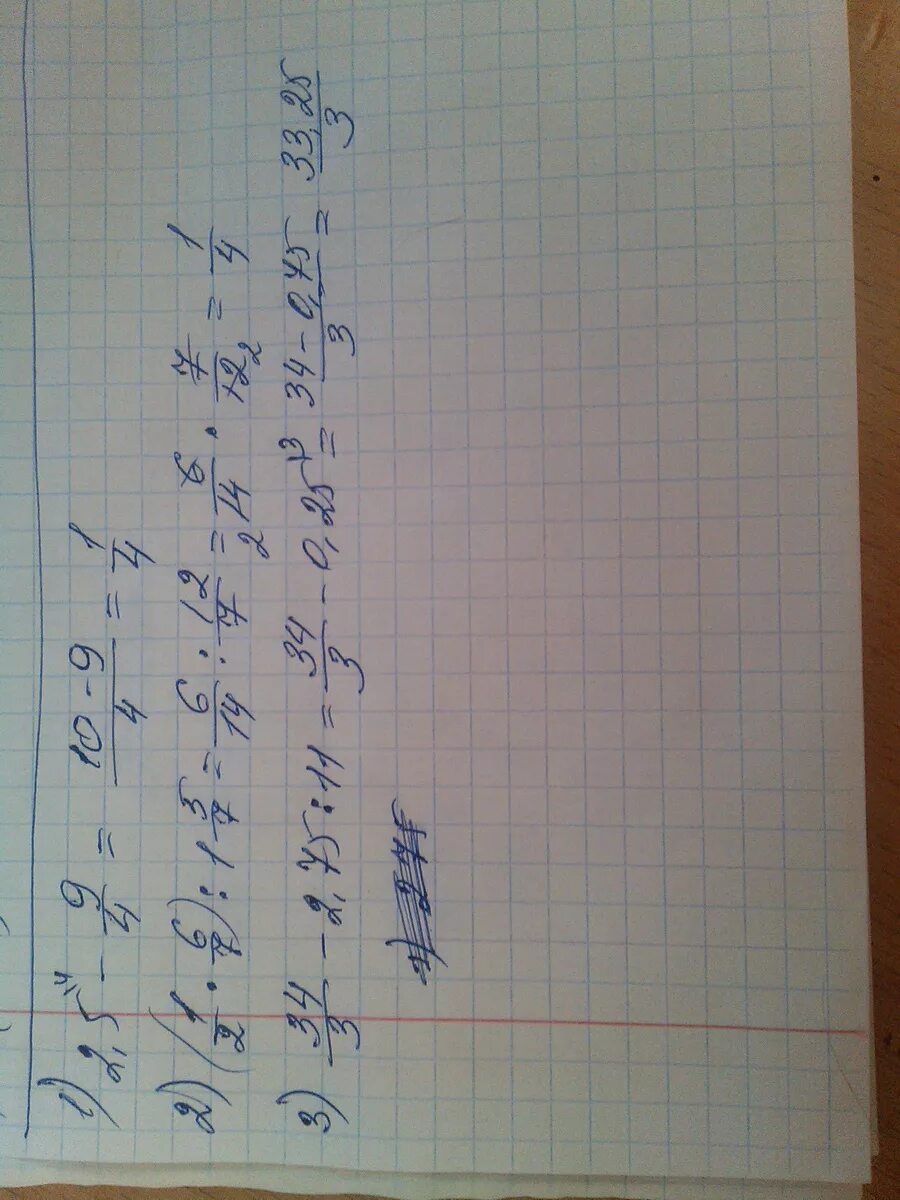 1) 2,5^{\4} - 9/4 = (10-9)/4 = 1/4
2) (1/2 · 6/7) : 1 5/7 = 6/14 : 12/7 = 6/14 · 7/12 = 1/4
3) 34/3 - 2,75 : 11 = 34/3 - 0,25^{\3} = (34-0,75)/3 = 33,25/3